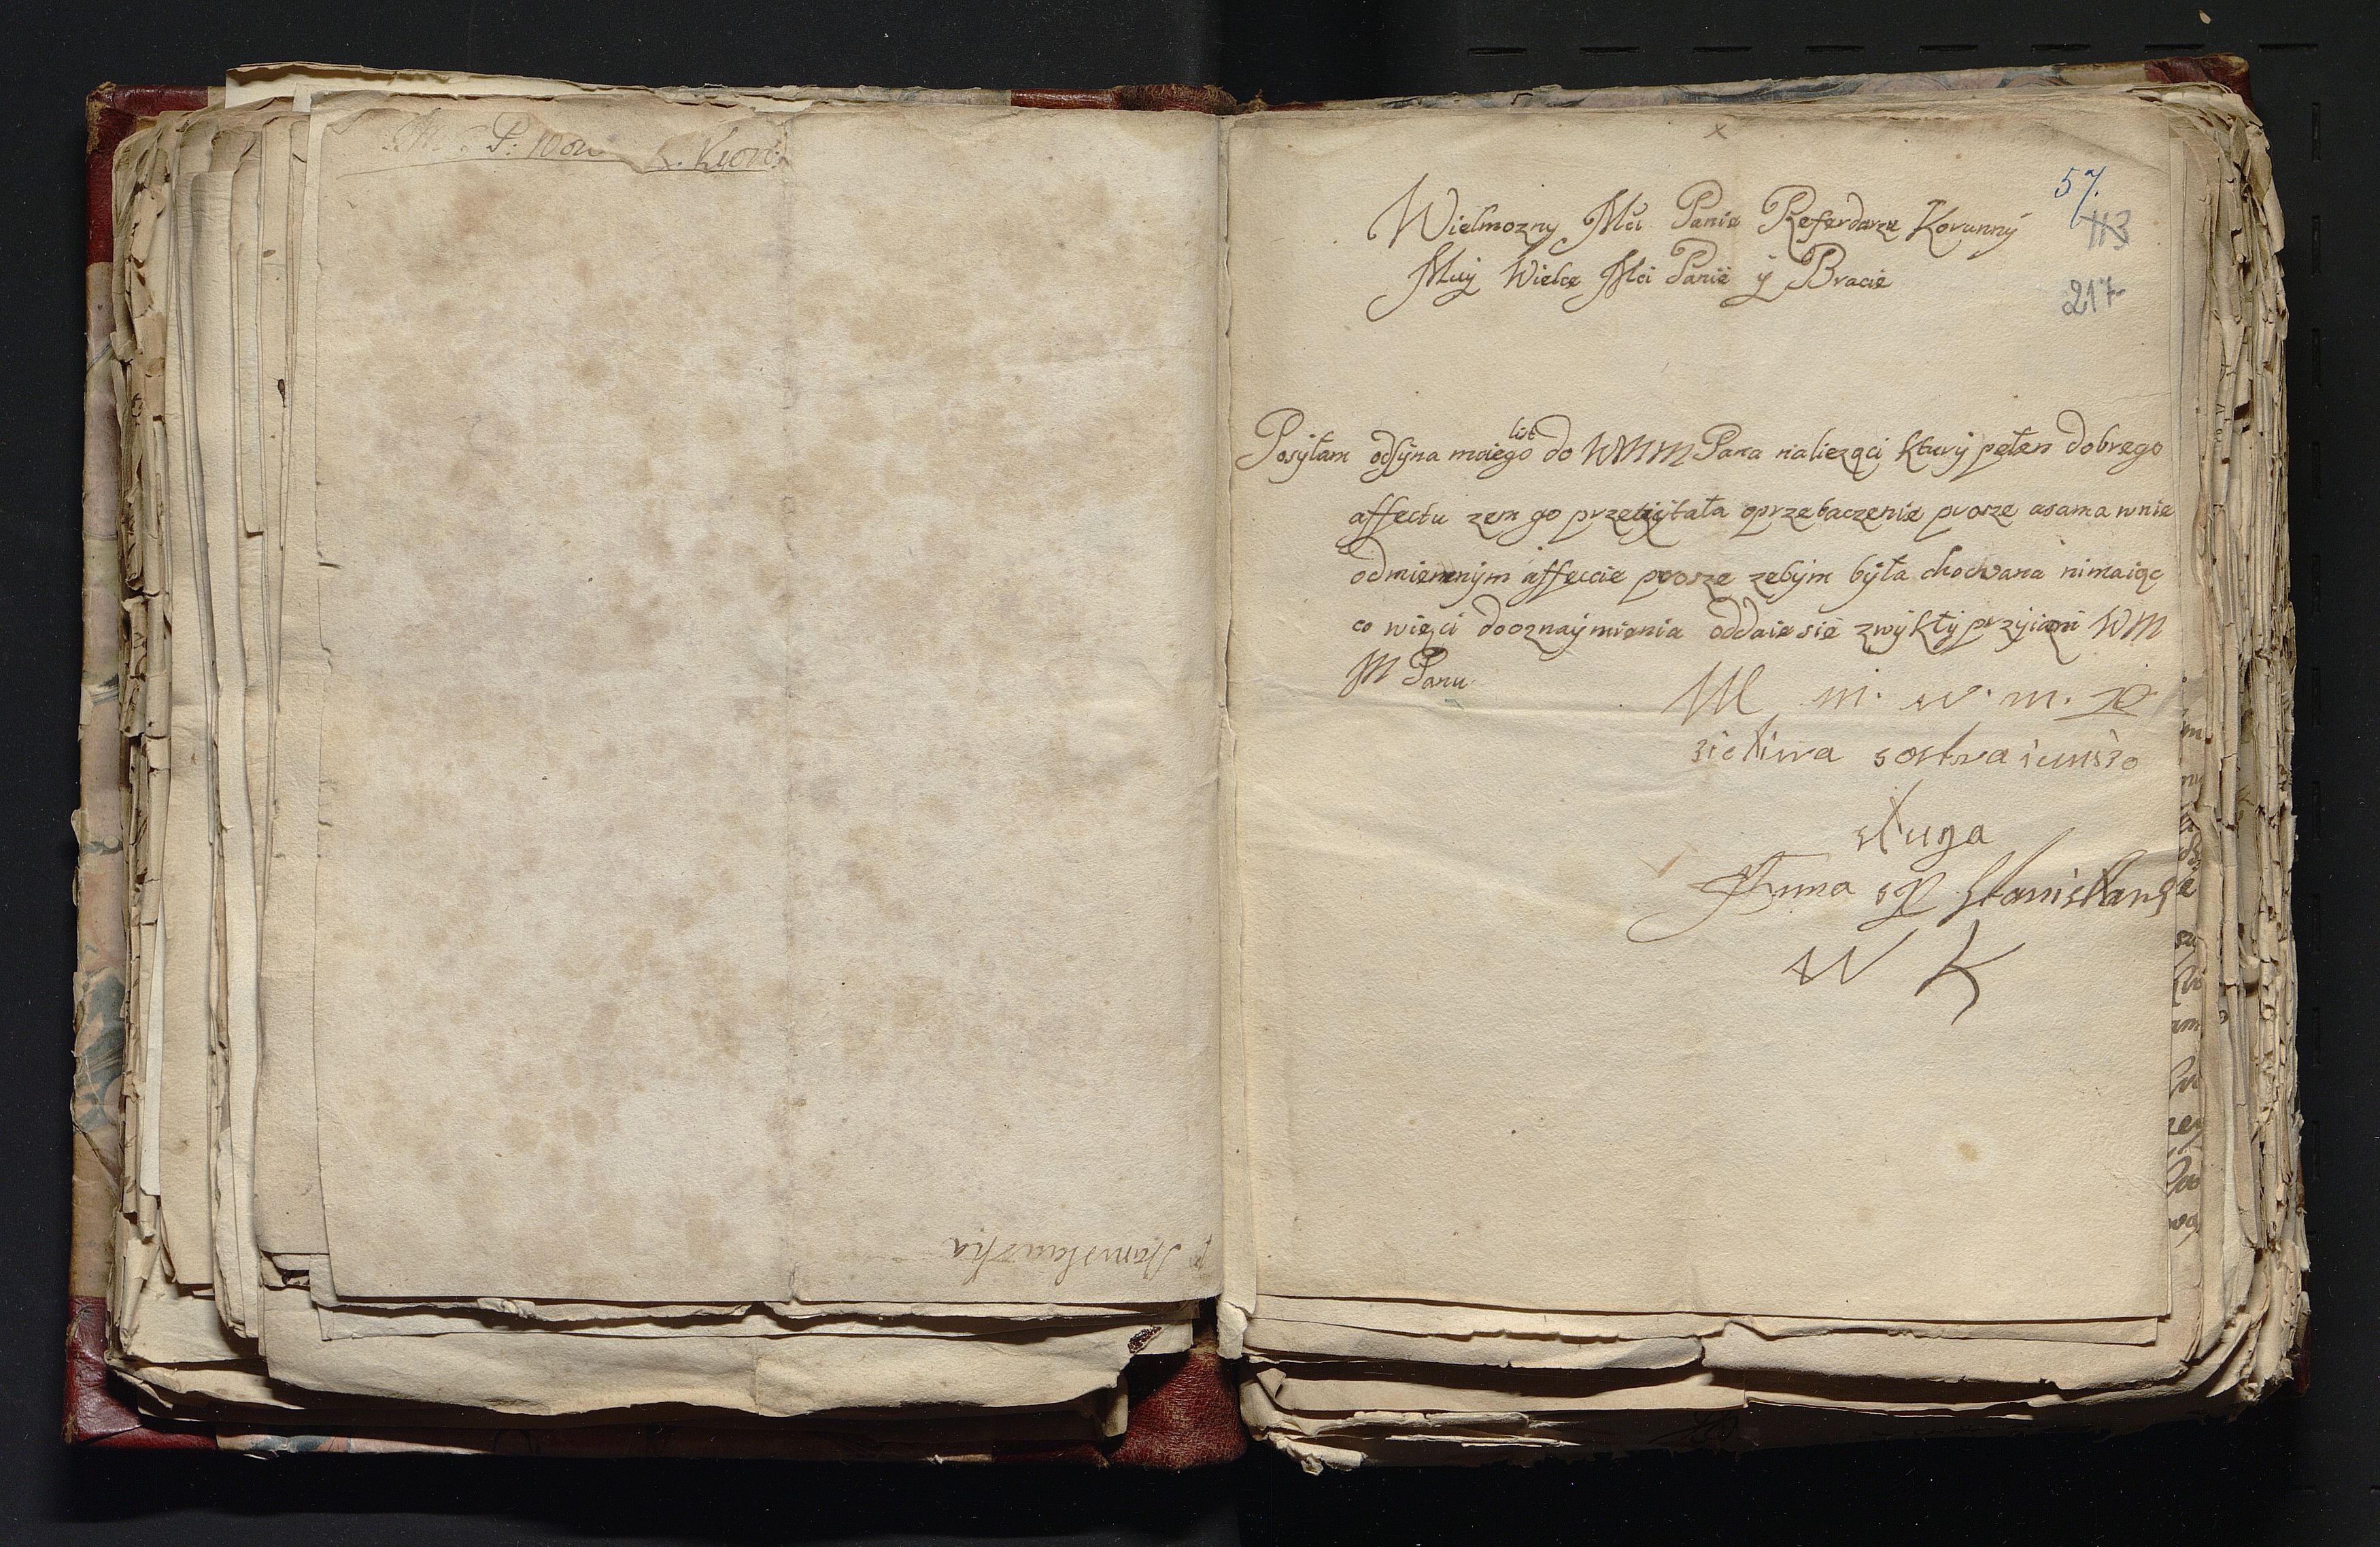 P: Won K. Kyow:
Stanisławska
57.
113
217
Wielmozny Mci Panie Referdarzu Korunny
Muy Wielce Mci Panie y Bracie
list
Posyłam odsyna moiego do WMMPana nalieząci ktury pełen dobrego
affectu zem go przeczytała oprzebaczenie prosze asama wnie
odmiennym affeccie prosze zebym była chowana nimaiąc
co więci dooznaymienia oddaie sie zwykły przyiazni WM
M Panu
M m. w. m. P
zicliwa sostra iunszo
sługa
Anna z P Stanisławsk
W K